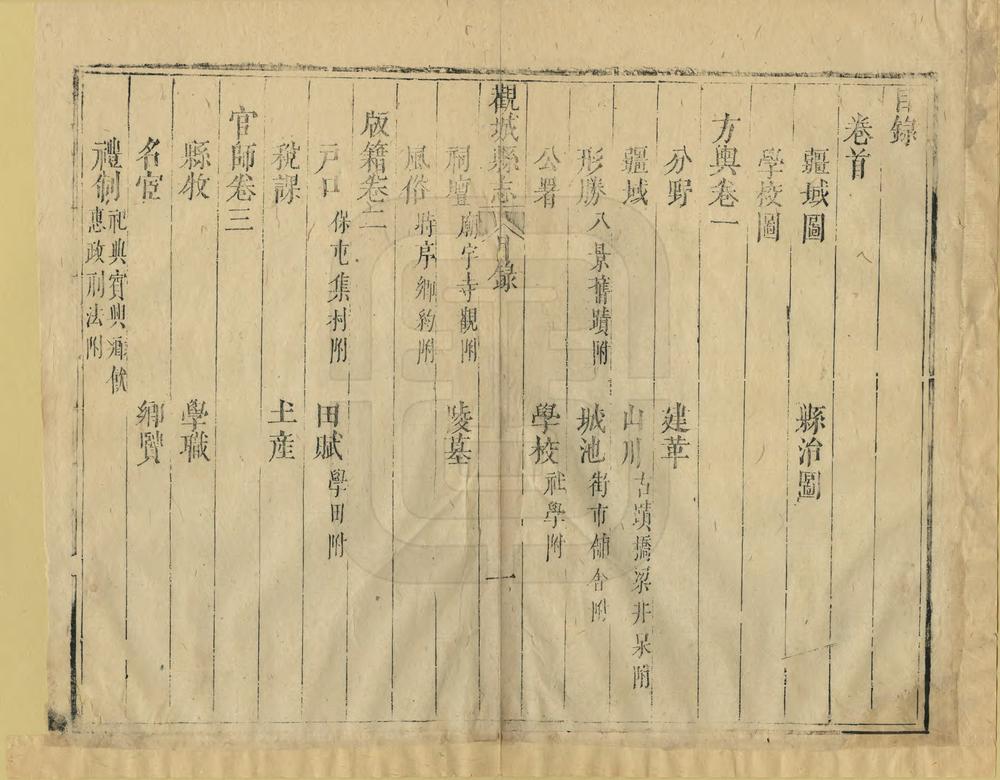 目錄
卷首
疆域圖 縣治圖
學校圖
方輿卷一
分野 建革
疆域 山川 古蹟橋梁井泉附
形勝 八景舊蹟附 城池 街市舖舍附
公署 學校 社學附
觀城縣志 目錄 一
祠壇 廟宇寺觀附 陵墓
風俗 時序鄉約附
版籍卷二
戶口 保屯集村附 田賦 學田附
稅課 土產
官師卷三
縣牧 學職
名宦 鄉賢
禮制 祀典賓興酒飲
惠政刑法附